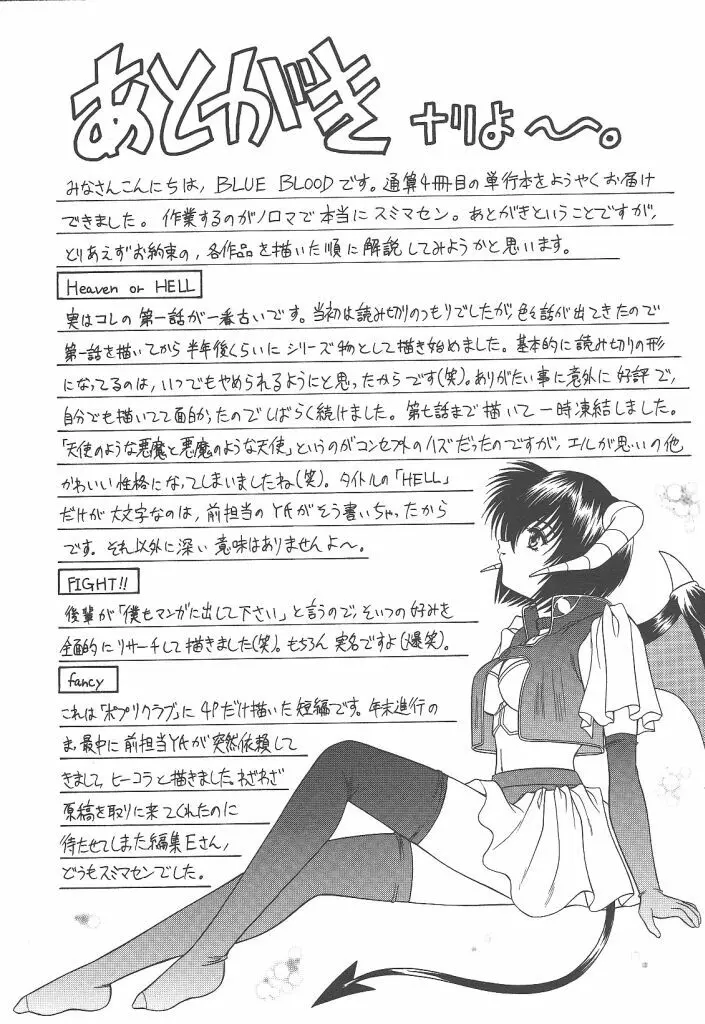 あとがきナリよ〜。
みなさんこんにちは, BLUE BLOODです。通算4冊目の単行本をようやくお届け
できました。作業するのがノロマで本当にスミマセン。あとがきということですが,
とりあえずお約束の, 各作品を描いた順に解説してみようかと思います。
Heaven or HELL
実はコレの第一話が一番古いです。当初は読み切りのつもりでしたが, 色々話が出てきたので
第一話を描いてから半年後くらいにシリーズ物として描き始めました。基本的に読み切りの形
になってるのは, いつでもやめられるようにと思ったからです(笑)。ありがたい事に意外に好評で,
自分でも描いてて面白かったのでしばらく続けました。第七話まで描いて一時凍結しました。
「天使のような悪魔と悪魔のような天使」というのがコンセプトのハズだったのですが, エルが思いの他
かわいい性格になってしまいましたね(笑)。タイトルの「HELL」
だけが大文字なのは, 前担当のYKがそう書いちゃったから
です。それ以外に深い意味はありませんよ〜。
FIGHT!!
後輩が「僕もマンガに出して下さい」と言うので, そいつの好みを
全面的にリサーチして描きました(笑)。もちろん実名ですよ(爆笑)。
fancy
これは「ポプリクラブ」に4Pだけ描いた短編です。年末進行の
ま, 最中に前担当YKが突然依頼して
きまして, ヒーコラと描きました。わざわざ
原稿を取りに来てくれたのに
待たせてしまった編集Eさん,
どうもスミマセンでした。